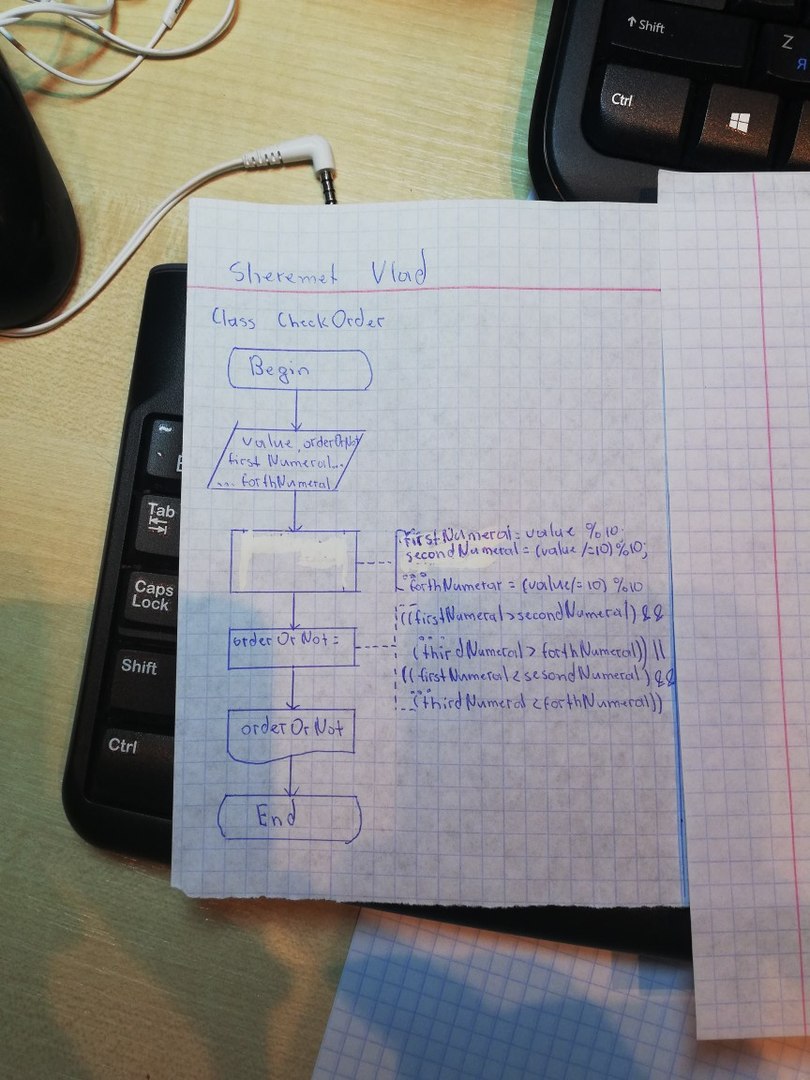 ↑ Shift
Z
Я
Ctrl
Sheremet Vlad
Class CheckOrder
Begin
value, orderOrNot
first Numeral...
... forthNumeral
firstNumeral = value % 10;
secondNumeral = (value /=10) % 10;
...
forthNumeral = (value /= 10) % 10
orderOrNot =
((firstNumeral > secondNumeral) &&
...
(thirdNumeral > forthNumeral)) ||
((firstNumeral < sesondNumeral) &&
...
(thirdNumeral < forthNumeral))
orderOrNot
End
~
Tab
Caps
Lock
Shift
Ctrl